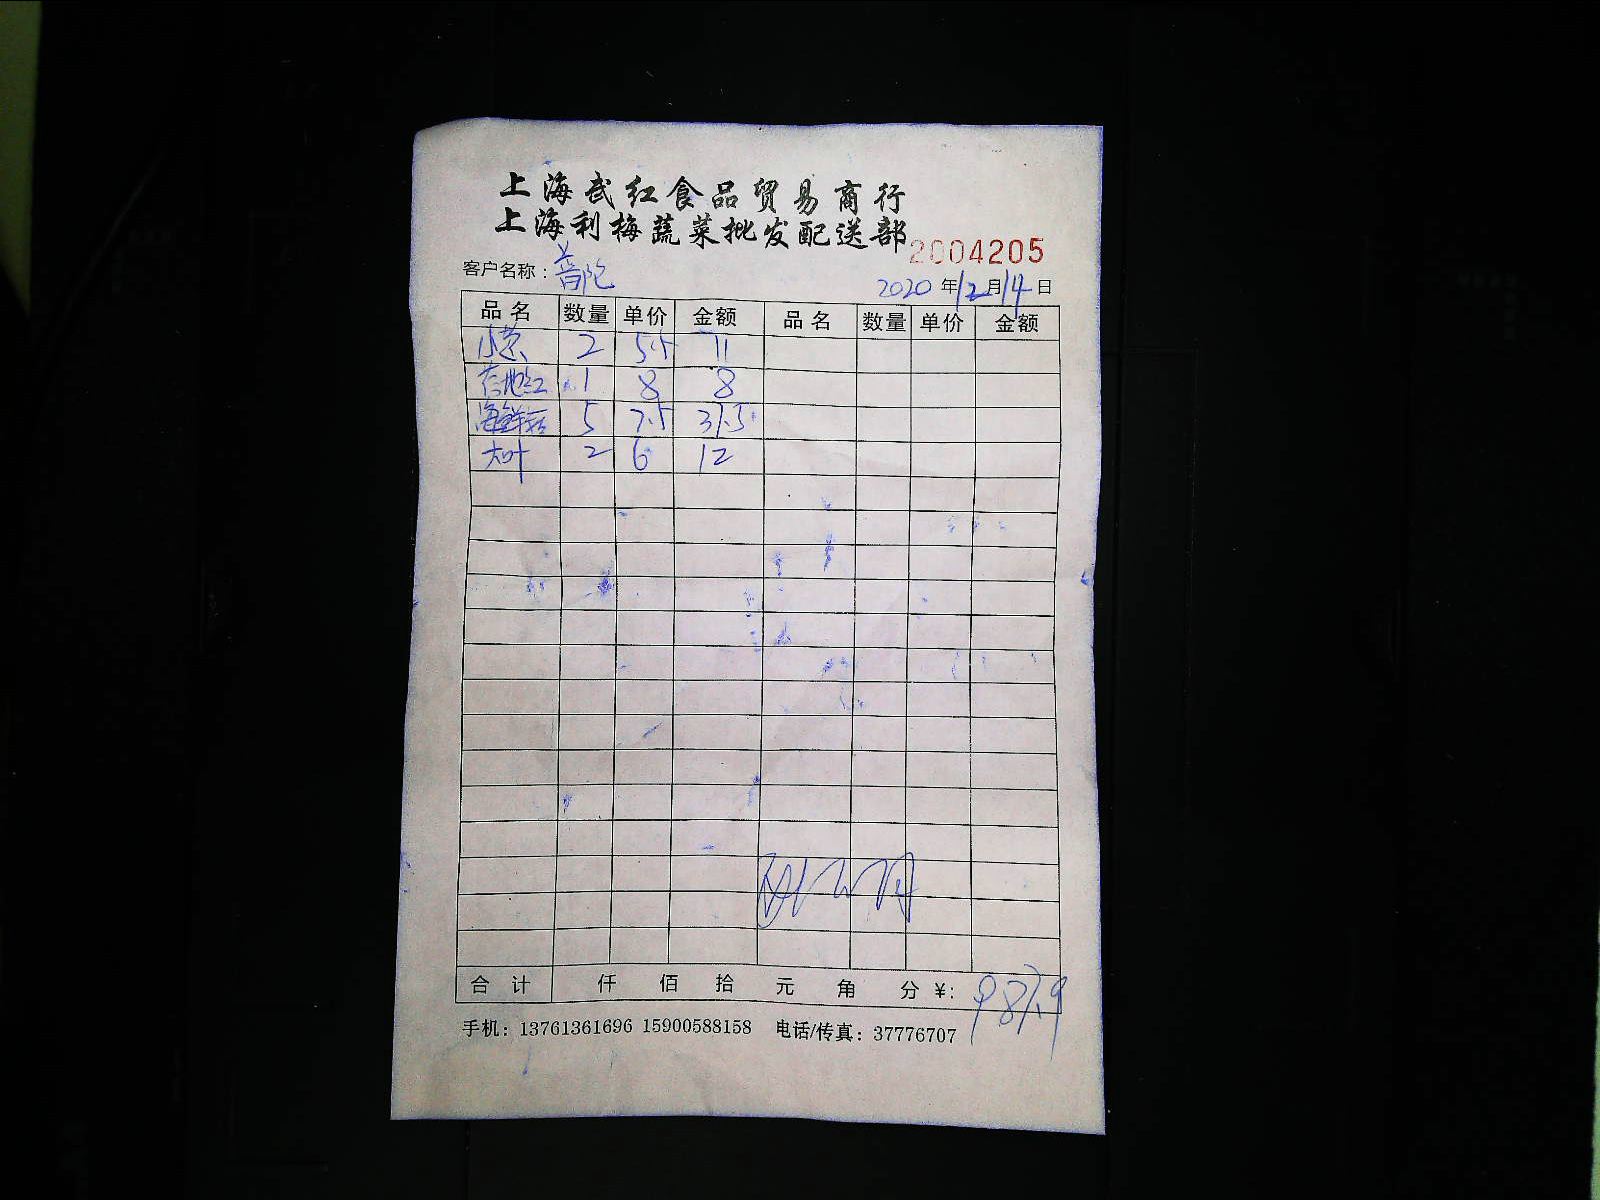 上海武红食品贸易商行
上海利梅蔬菜批发配送部
2004205
客户名称：普陀 2020年12月14日
品名 数量 单价 金额 品名 数量 单价 金额
小葱 2 5.5 11
1 8 8
海鲜菇 5 7.5 37.5
大叶 2 6 12
合计 仟 佰 拾 元 角 分 ¥: 987.9
手机：13761361696 15900588158 电话/传真：37776707